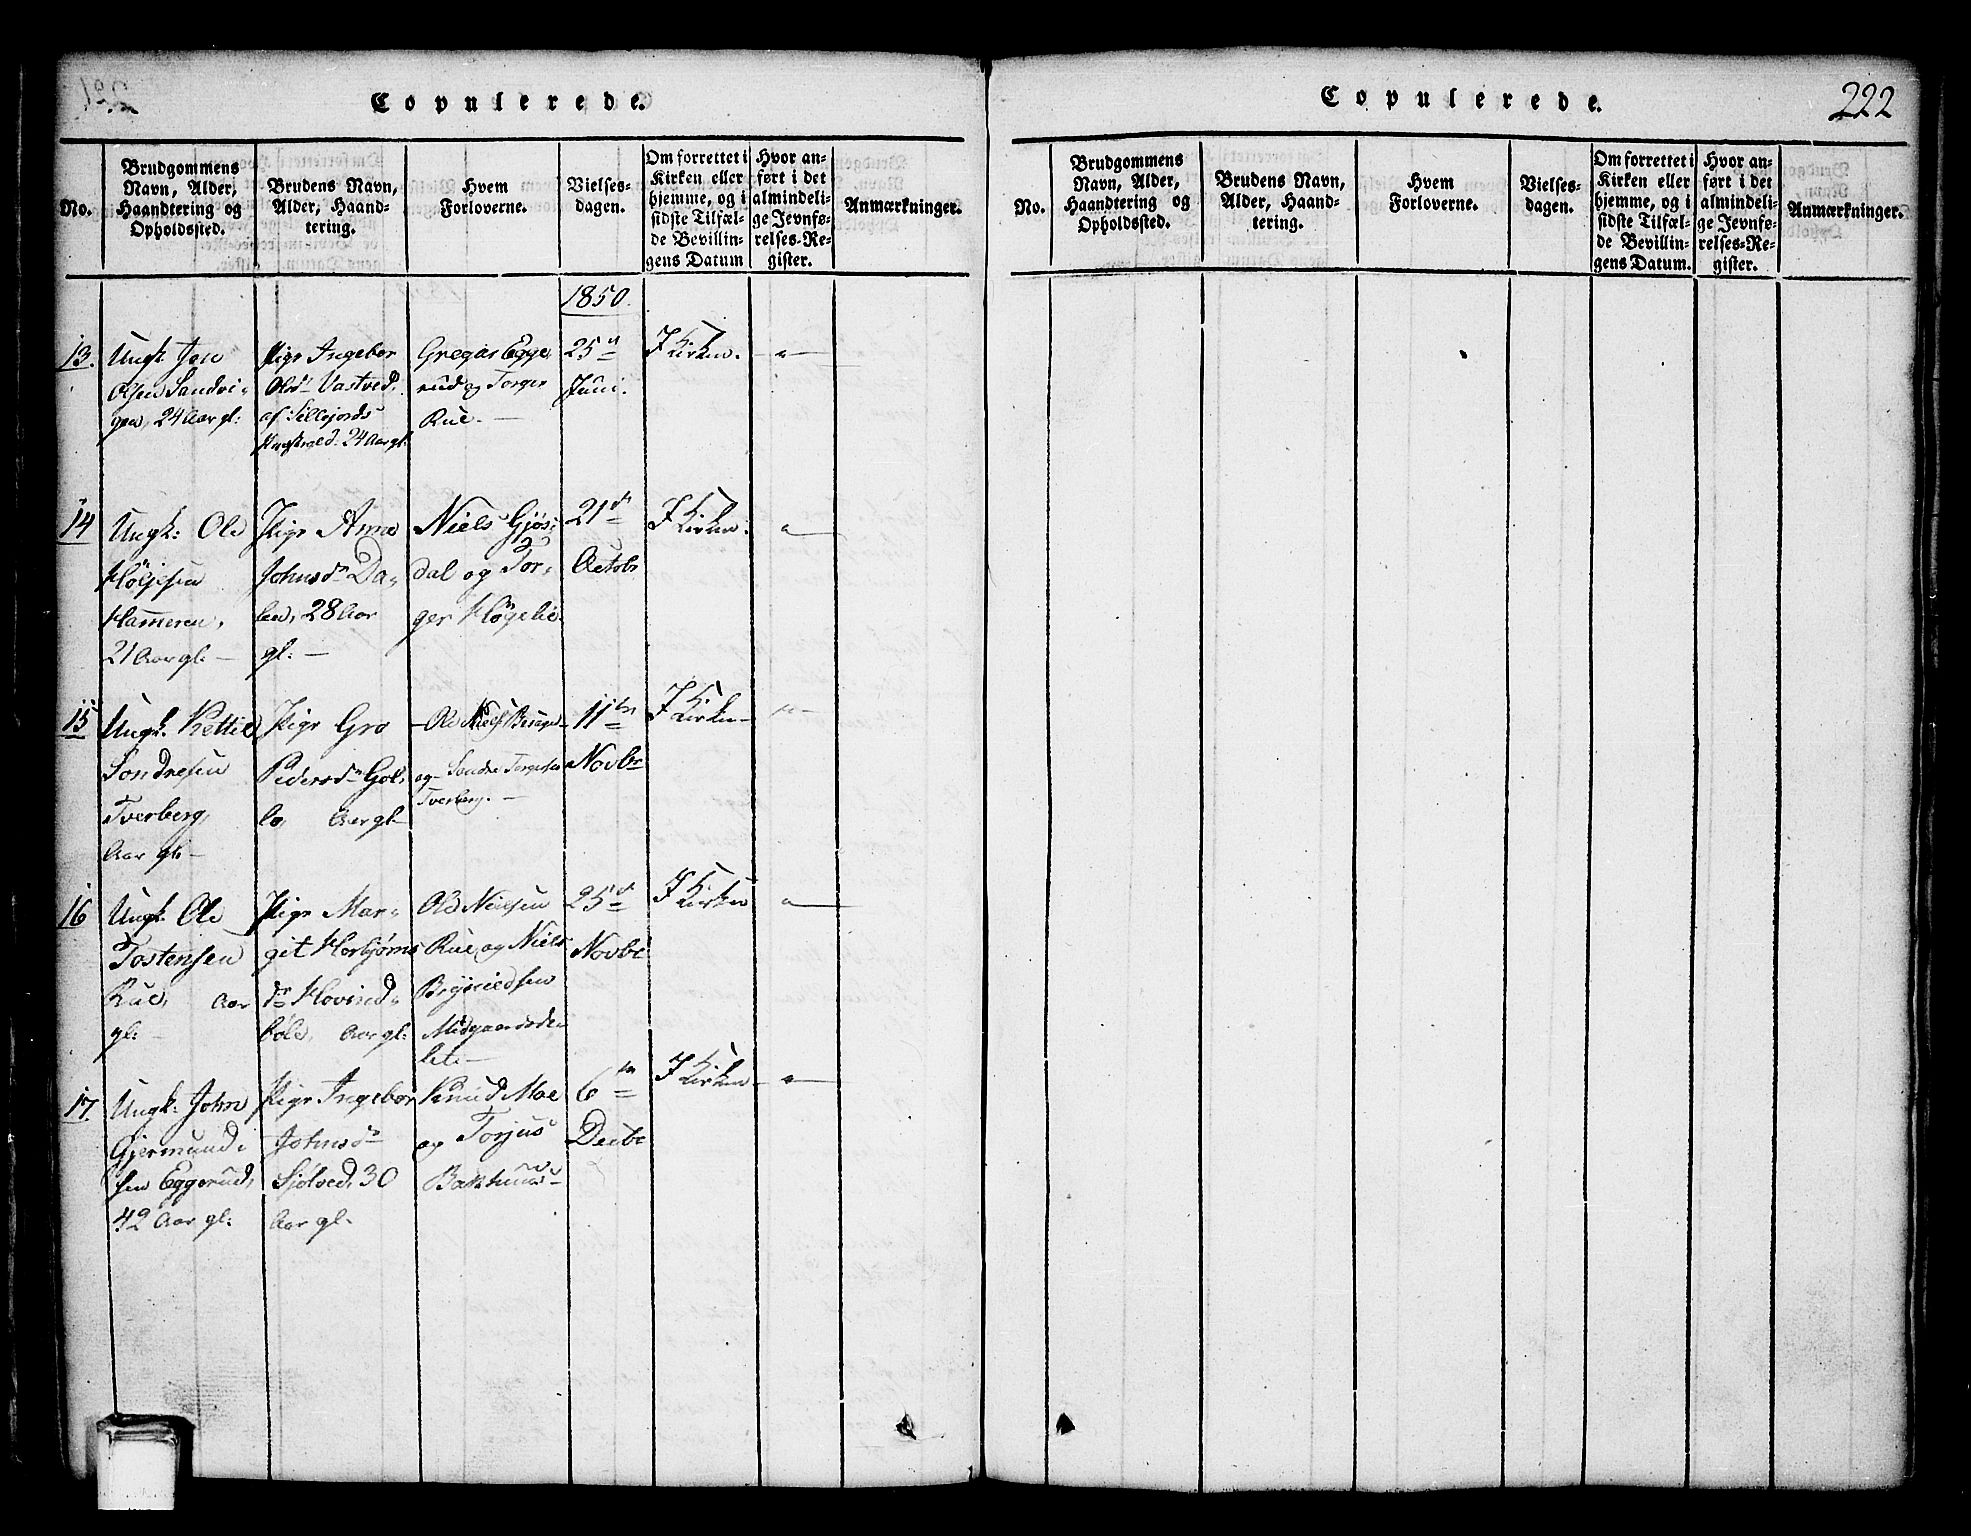 Copulerede.
No.
Brudgommens
Navn, Alder,
Haandtering og
Opholdssted.
Brudens Navn,
Alder, Haand-
tering.
Hvem
Forloverne.
Vielses-
dagen.
Om forrettet i
Kirken eller
hjemme, og i
sidste Tilfæl-
de Bevillin-
gens Datum
Hvor an-
ført i det
almindeli-
ge Jevnfø-
relses-Re-
gister.
Anmærkninger.
1850.
13.
Ungk. Jon
Olsen Sandvi-
gen, 24 Aar gl:
Pige Ingebor
Olsdr Vastved.
af Sillejords
24 Aar gl.
Gregar Egge,
rud og Torger
Rue. —
25de
Juni.
I Kirken.
14
Ungk: Ole
Höljesen
Hameren,
21 Aar gl: —
Pige Anne
Johnsdr Da-
len, 28 Aar
gl: —
Niels Gjøs-
dal og Tor-
ger Høgelie.
21de
Octobr
I Kirken.
15
Ungk. Kettil
Sondresen
Tverberg,
Aar gl. —
Pige Gro
Pedersdr Gol-
lo, Aar gl.
Ole Niels
og Sondre Torgersen
Tverberg. —
11te
Novbr
I Kirken
16
Ungk. Ole
Tostensen
Rue, Aar
gl: —
Pige Mar-
git Herbjørns
dr Hovind-
bøle, Aar gl:
Ole Nielsen
Rue og Niels
Brynildsen
Midgaards
25de
Novbr
I Kirken
17.
Ungk: John
Gjermund-
sen Eggerud,
42 Aar gl:
Pige Ingebor
Johnsdr
Sjølved, 30
Aar gl.
Knud Moe
og Torjus
Bakhuus —
6te
Decbr
I Kirken
Copulerede.
222
No.
Brudgommens
Navn, Alder,
Haandtering og
Opholdssted.
Brudens Navn,
Alder, Haand-
tering.
Hvem
Forloverne.
Vielses-
dagen.
Om forrettet i
Kirken eller
hjemme, og i
sidste Tilfæl-
de Bevillin-
gens Datum.
Hvor an-
ført i det
almindeli-
ge Jevnfø-
relses-Re-
gister.
Anmærkninger.